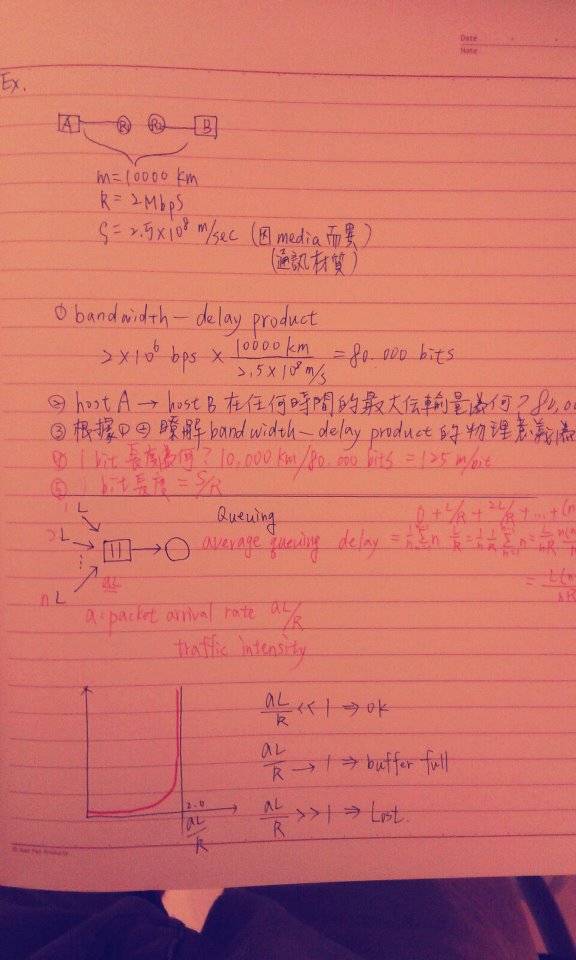 Date
Note
Ex.
A R1 R2 B
m = 10000 km
R = 2 Mbps
S = 2.5×10⁸ m/sec (因media而異)
(通訊材質)
① bandwidth－delay product
2×10⁶ bps × 10000 km / 2.5×10⁸ m/s = 80.000 bits
② host A → host B 在任何時間的最大伝輸量為何? 80,00
③ 根據①② 瞭解 bandwidth－delay product 的物理意義為
④ 1 bit 長度為何? 10,000 km/80.000 bits = 125 m/bit
⑤ 1 bit 長度 = S/R
1 L
2 L
⋮
n L
aL
Queuing
0 + L/R + 2L/R + ... + (n
average queuing delay
a = packet arrival rate aL/R
traffic intensity
aL/R << 1 ⇒ ok
aL/R → 1 ⇒ buffer full
aL/R >> 1 ⇒ Lost.
2.0
aL/R